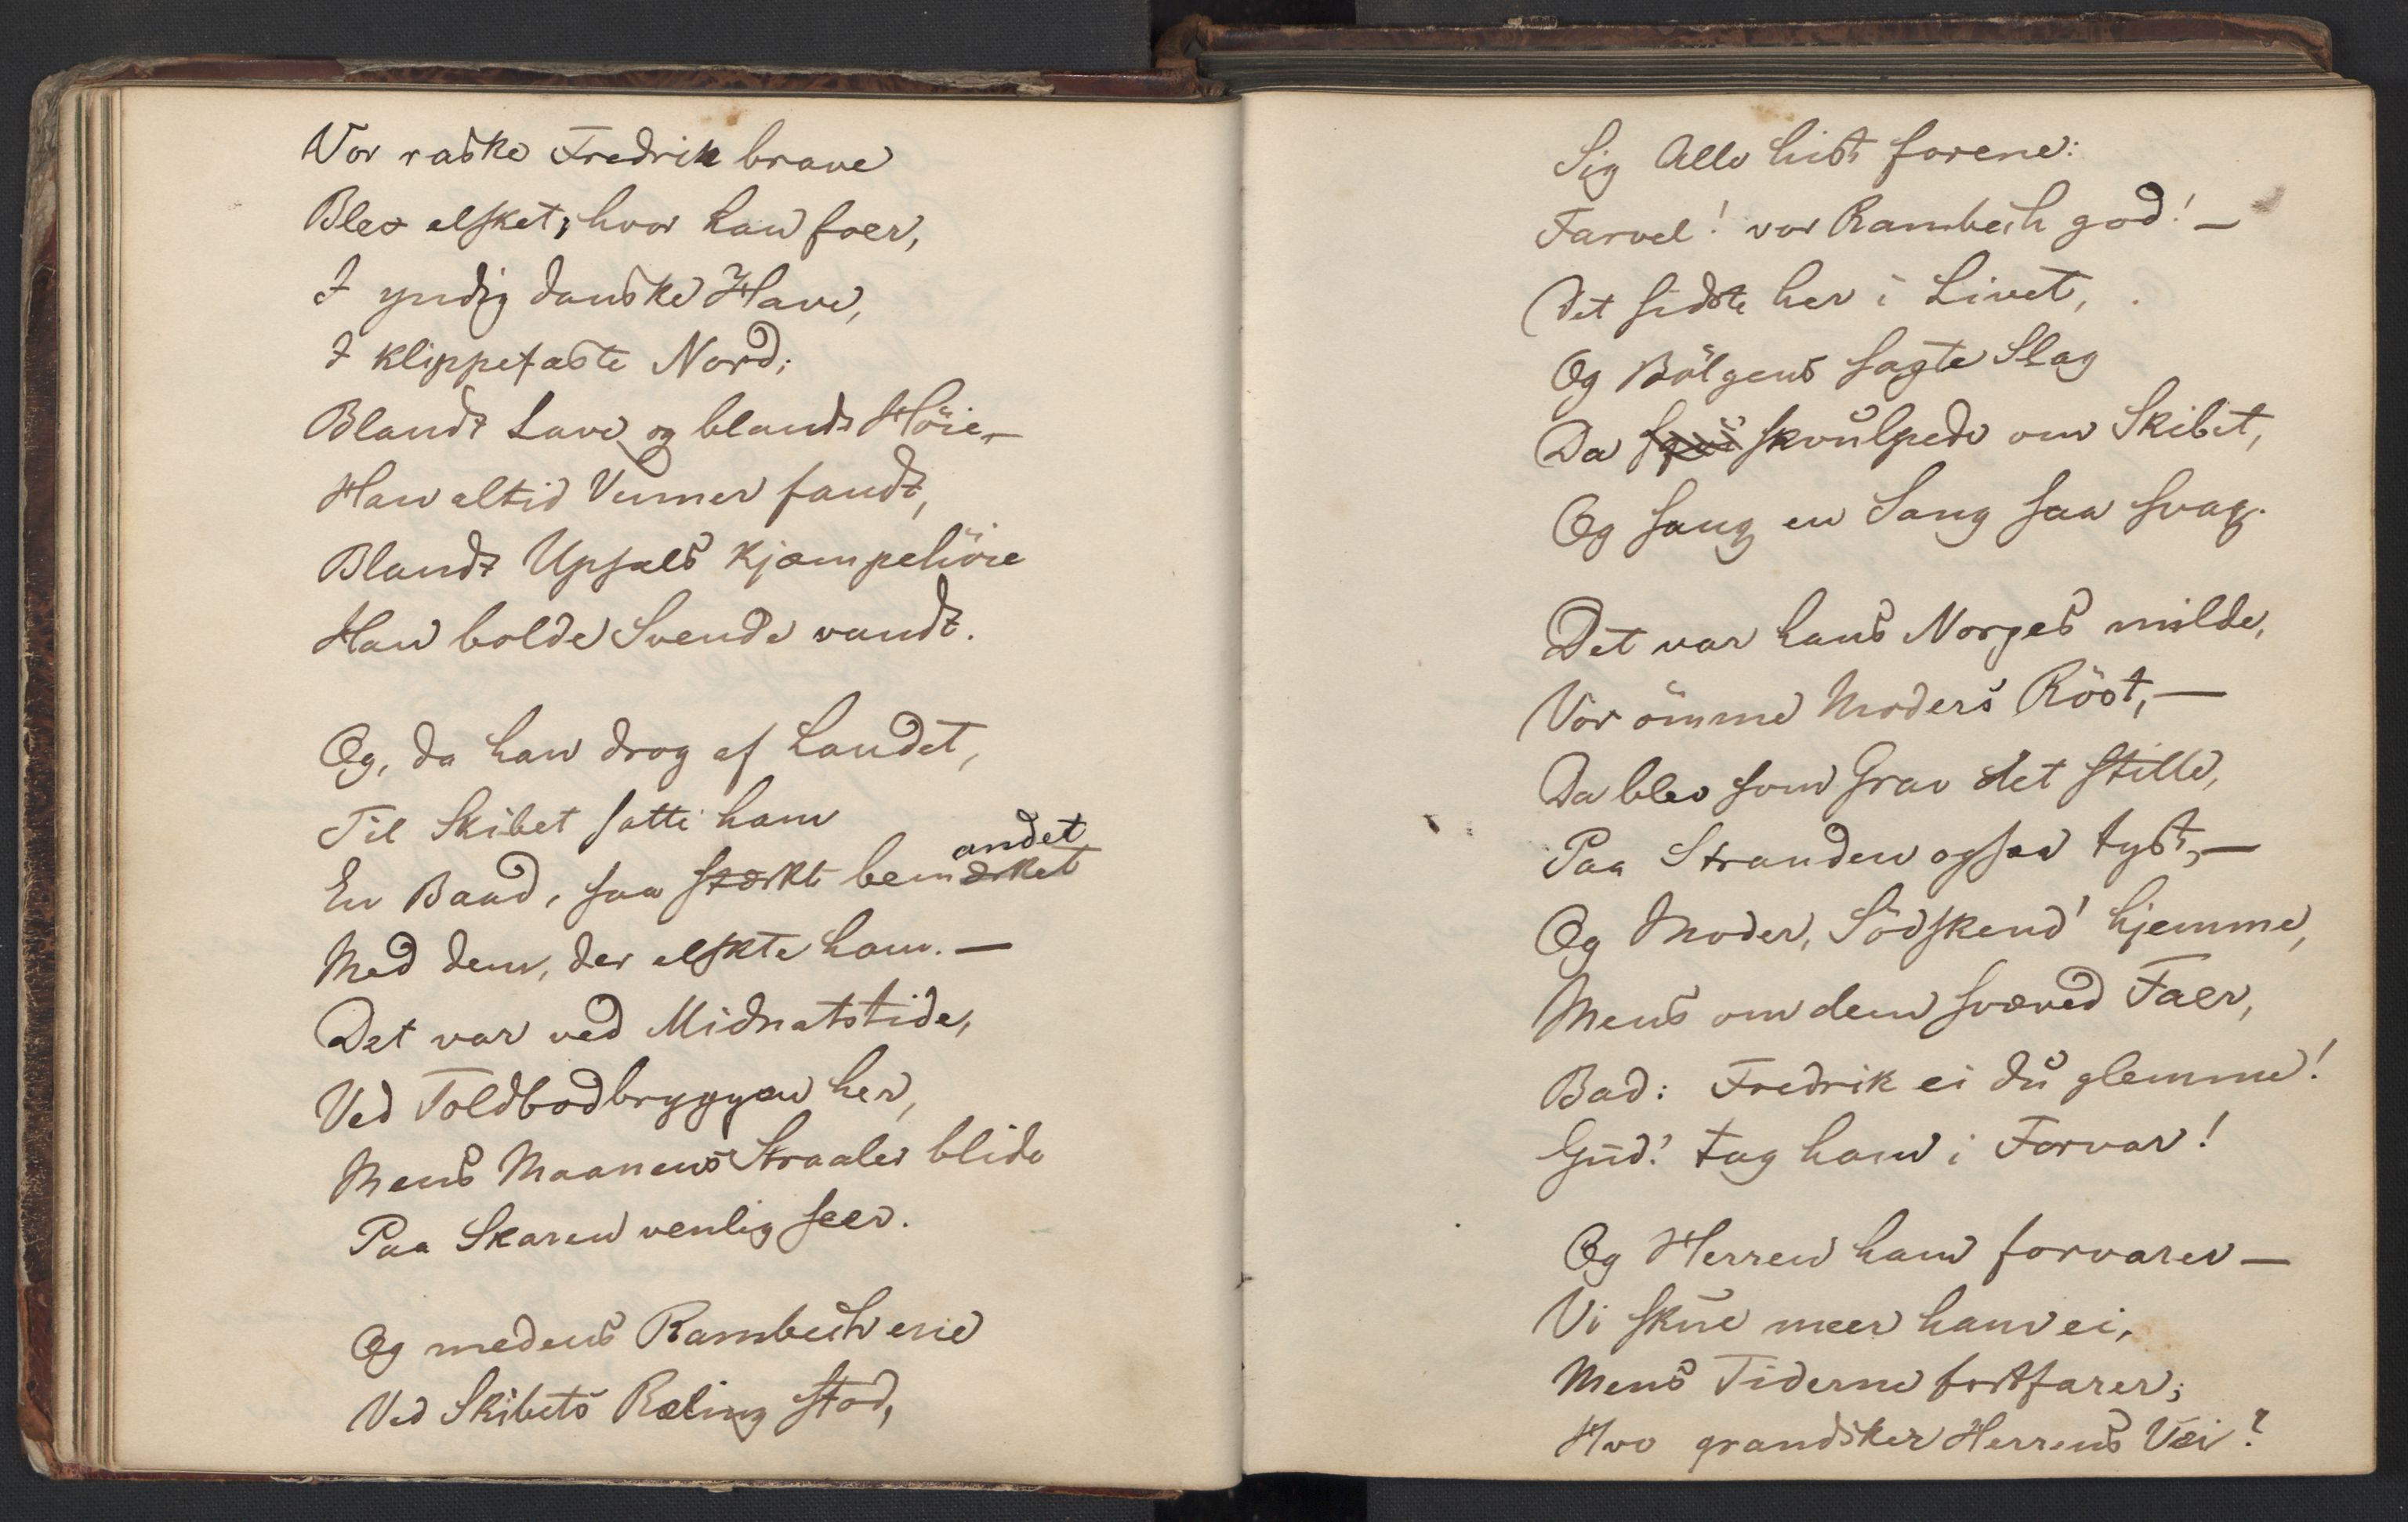 Vor raske Fredrik brave
Blev elsket, hvor han foer,
I yndig danske Have,
I klippefaste Nord;
Blandt Lave og blandt Höie –
Han altid Venner fandt,
Blandt Upsals Kjæmpehöie
Han bolde Svende vandt.
Og, da han drog af Landet,
Til Skibet satte ham
En Baad, saa stærkt bemærket
andet
Med dem, der elskte ham. –
Det var ved Midnatstide,
Ved Toldbodbryggen her,
Mens Maanens Straaler blide
Paa Skaren venlig seer.
Og medens Rambech ene
Ved Skibets Ræling stod,
Sig Alle hist forene:
Farvel! vor Rambech god! –
Det sidste her i Livet,
Og Bölgens sagte Slag
Da skvulpede om Skibet,
Og sang en Sang saa svag.
Det var hans Norges milde,
Vor ömme Moders Röst, –
Da blev som Grav det stille,
Paa Stranden ogsaa tyst, –
Og Moder, Södskend' hjemme,
Mens om dem sværed Faer,
Bad: Fredrik ei du glemme!
Gud! tag ham i Forvar!
Og Herren ham forvarer –
Vi skue meer ham ei,
Mens Tiderne fortfarer;
Hvo grandsker Herrens Vei?